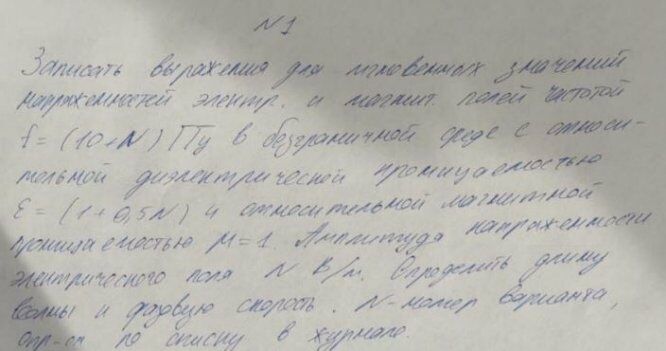 N 1
Записать выражения для мгновенных значений
напряженностей электр. и магнит. полей частотой
f = (10+N) ГГц в безграничной среде с относи-
тельной диэлектрической проницаемостью
ε = (1+0,5N) и относительной магнитной
проницаемостью μ=1. Амплитуда напряженности
электрического поля N В/м. Определить длину
волны и фазовую скорость. N-номер варианта,
опр-ся по списку в журнале.